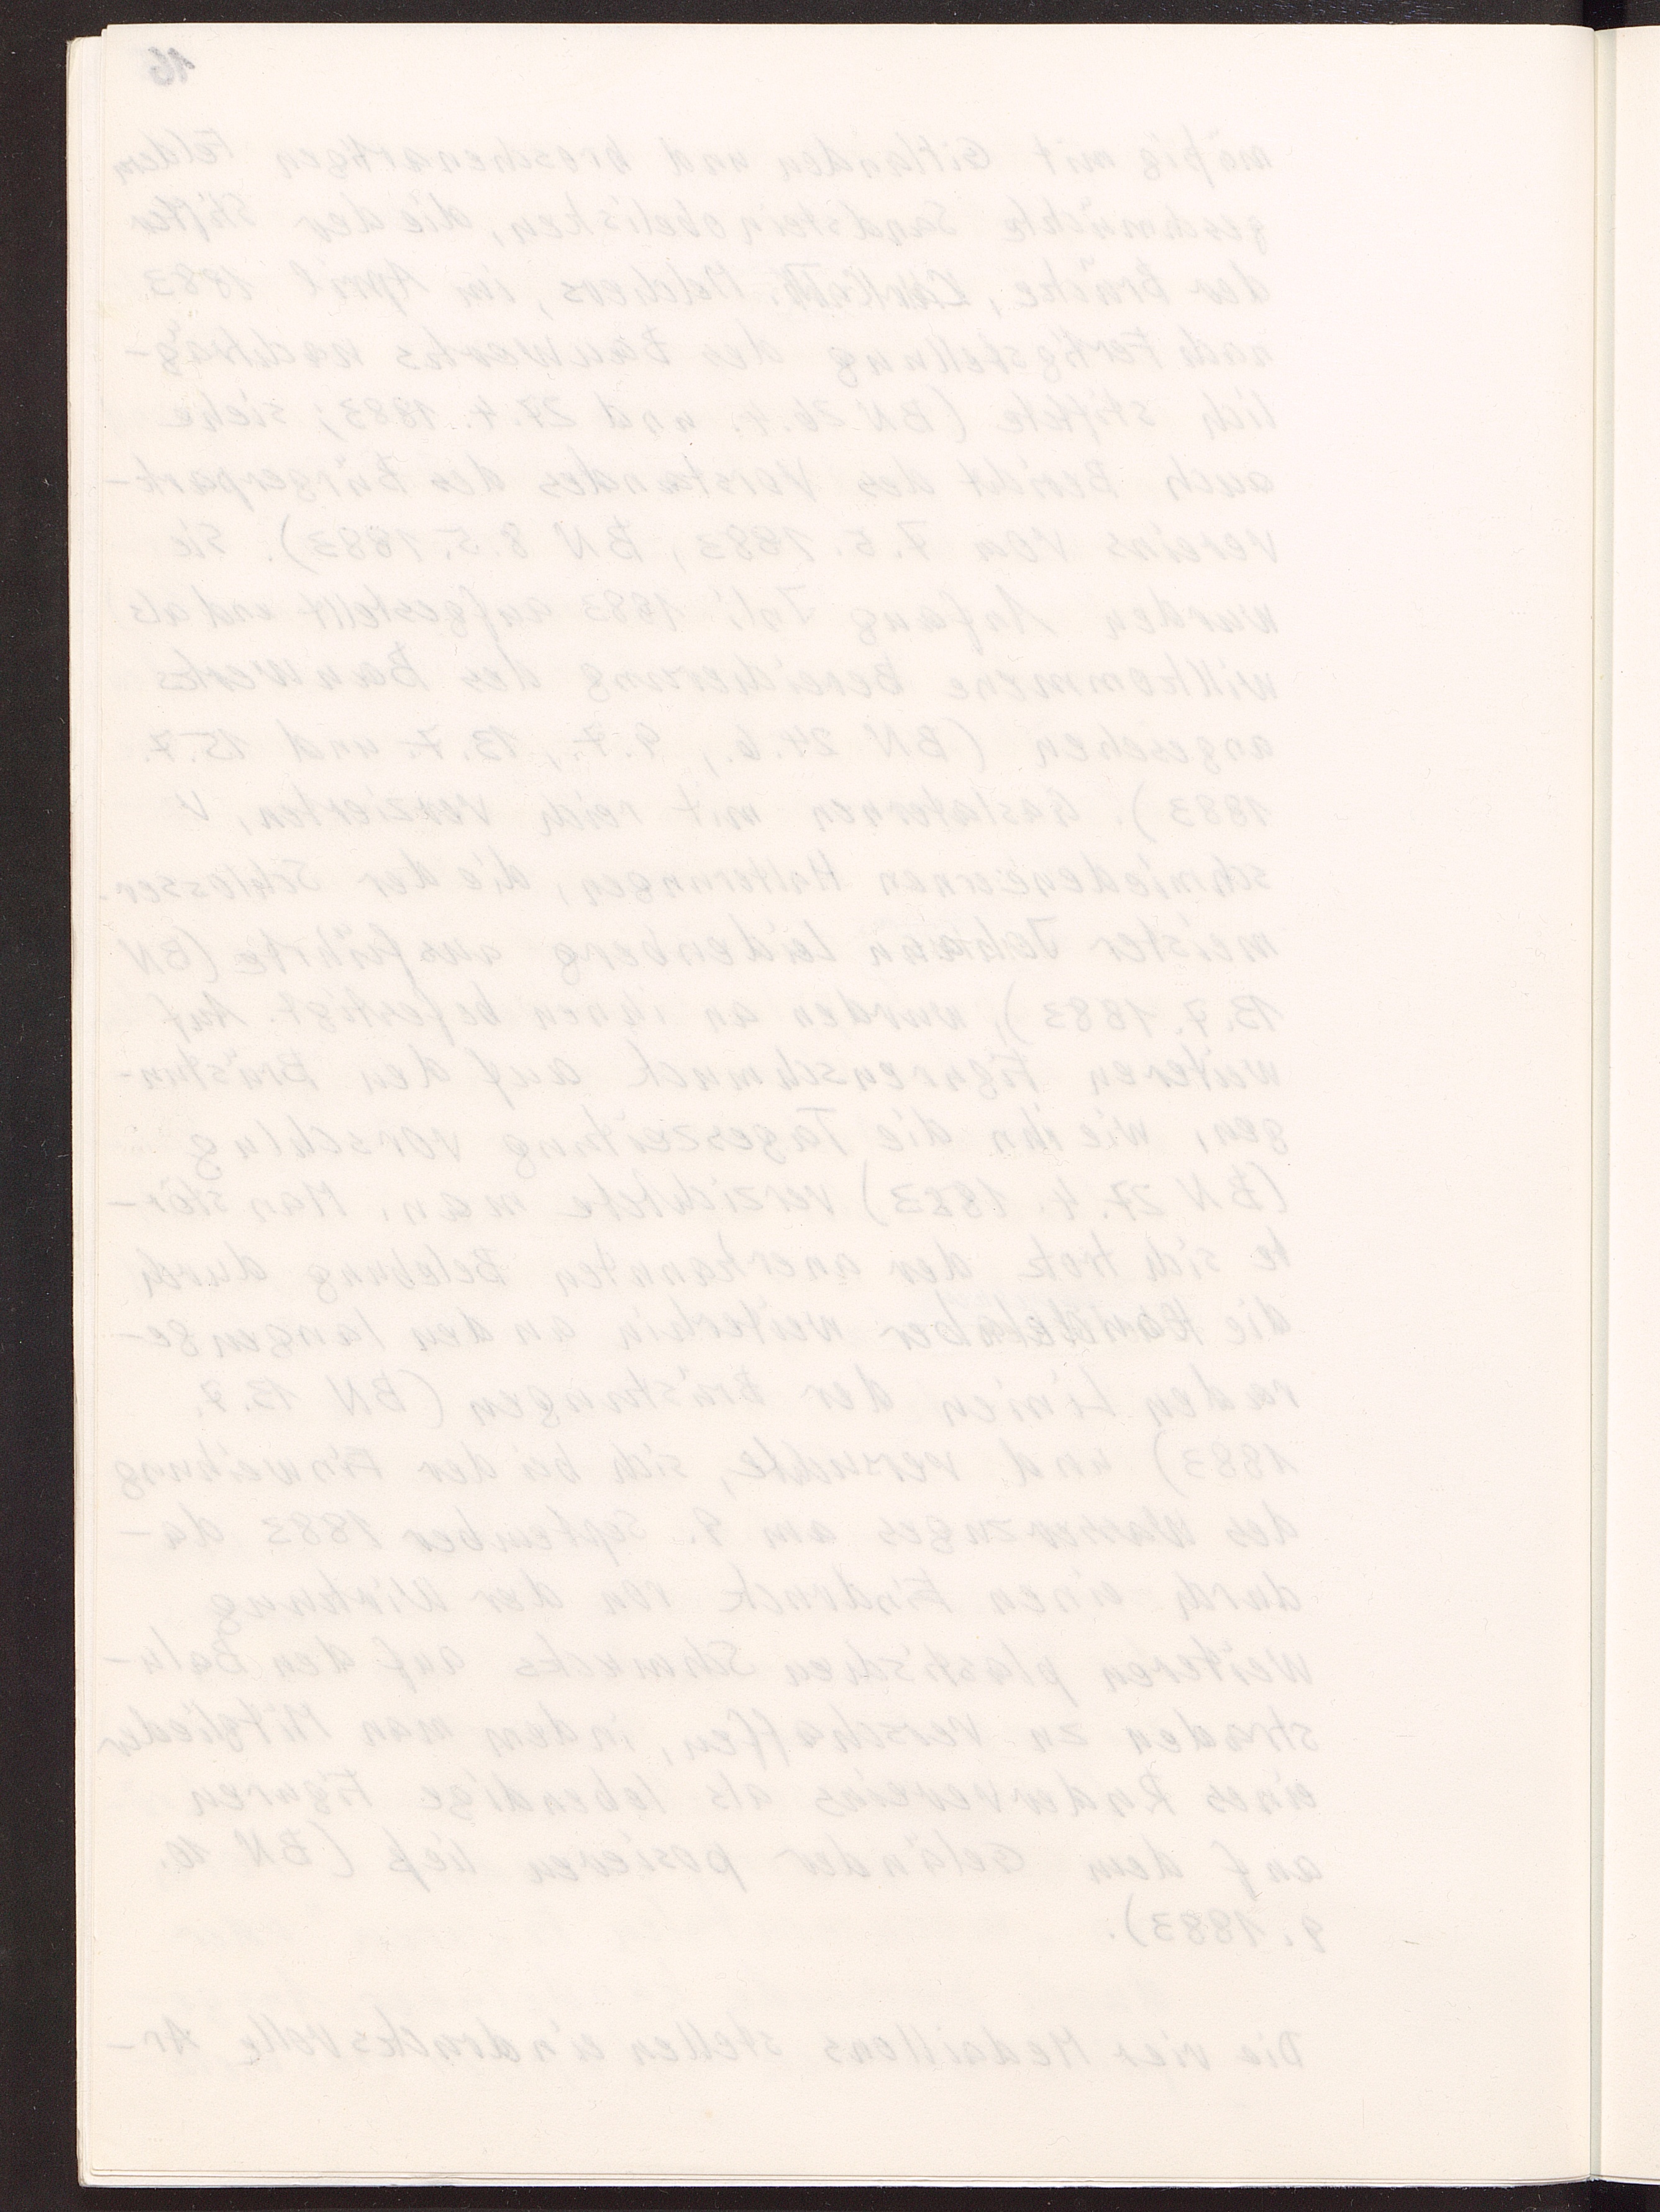 16
mäßig mit Girlanden und broschenartigen Feldern
geschmückte Sandsteinobelisken, die der Stifter
der Brücke, Melchers, im April 1883
nach Fertigstellung des Bauwerkes nachträg-
lich stiftete (BN 26.4. und 27.4.1883; siehe
auch Bericht des Vorstandes des Bürgerpark-
vereins von 7.5.1883, BN 8.5.1883). Sie
wurden Anfang Juli 1883 aufgestellt und als
willkommene Bereicherung des Bauwerks
angesehen (BN 24.6., 9.7., 13.7. und 15.7.
1883). Gaslaternen mit reich verzierten,
schmiedeeisernen Halterungen, die der Schlosser-
meister Johann Leidenberg ausführte (BN
13.7.1883), wurden an ihnen befestigt. Auf
weiteren Figurenschmuck auf den Brüstun-
gen, wie ihn die Tageszeitung vorschlug
(BN 27.4.1883) verzichtete man. Man stör-
te sich trotz der anerkannten Belebung durch
die Kandelaber weiterhin an den langen ge-
raden Linien der Brüstungen (BN 13.7.
1883) und versuchte, sich bei der Einweihung
des Wasserzuges am 9. September 1883 da-
durch einen Eindruck von der Wirkung
weiteren plastischen Schmucks auf den Balu-
straden zu verschaffen, indem man Mitglieder
eines Rudervereins als lebendige Figuren
auf dem Geländer posieren ließ (BN 10.
9.1883).
Die vier Medaillons stellen eindrucksvolle Ar-